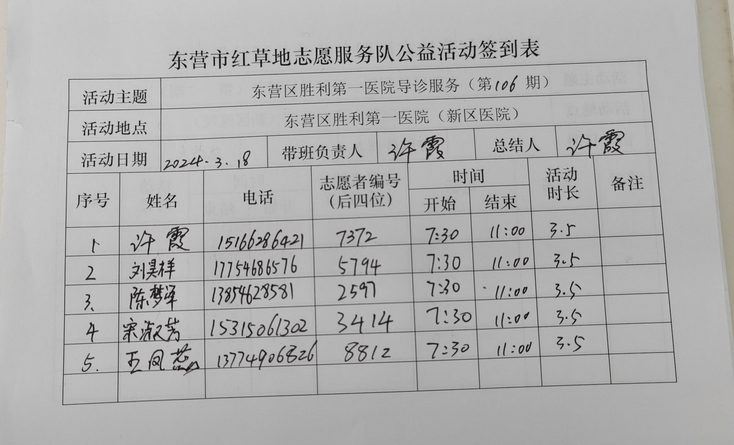 东营市红草地志愿服务队公益活动签到表
活动主题 东营区胜利第一医院导诊服务（第106期）
活动地点 东营区胜利第一医院（新区医院）
活动日期 2024.3.18 带班负责人 许霞 总结人 许霞
序号 姓名 电话 志愿者编号（后四位） 时间 开始 结束 活动时长 备注
1. 许霞 15166286421 7372 7:30 11:00 3.5
2 刘昊样 17754686576 5794 7:30 11:00 3.5
3. 陈梦泽 13854628581 2597 7:30 11:00 3.5
4 宋淑芳 15315061302 3414 7:30 11:00 3.5
5. 王凤燕 13774906826 8812 7:30 11:00 3.5